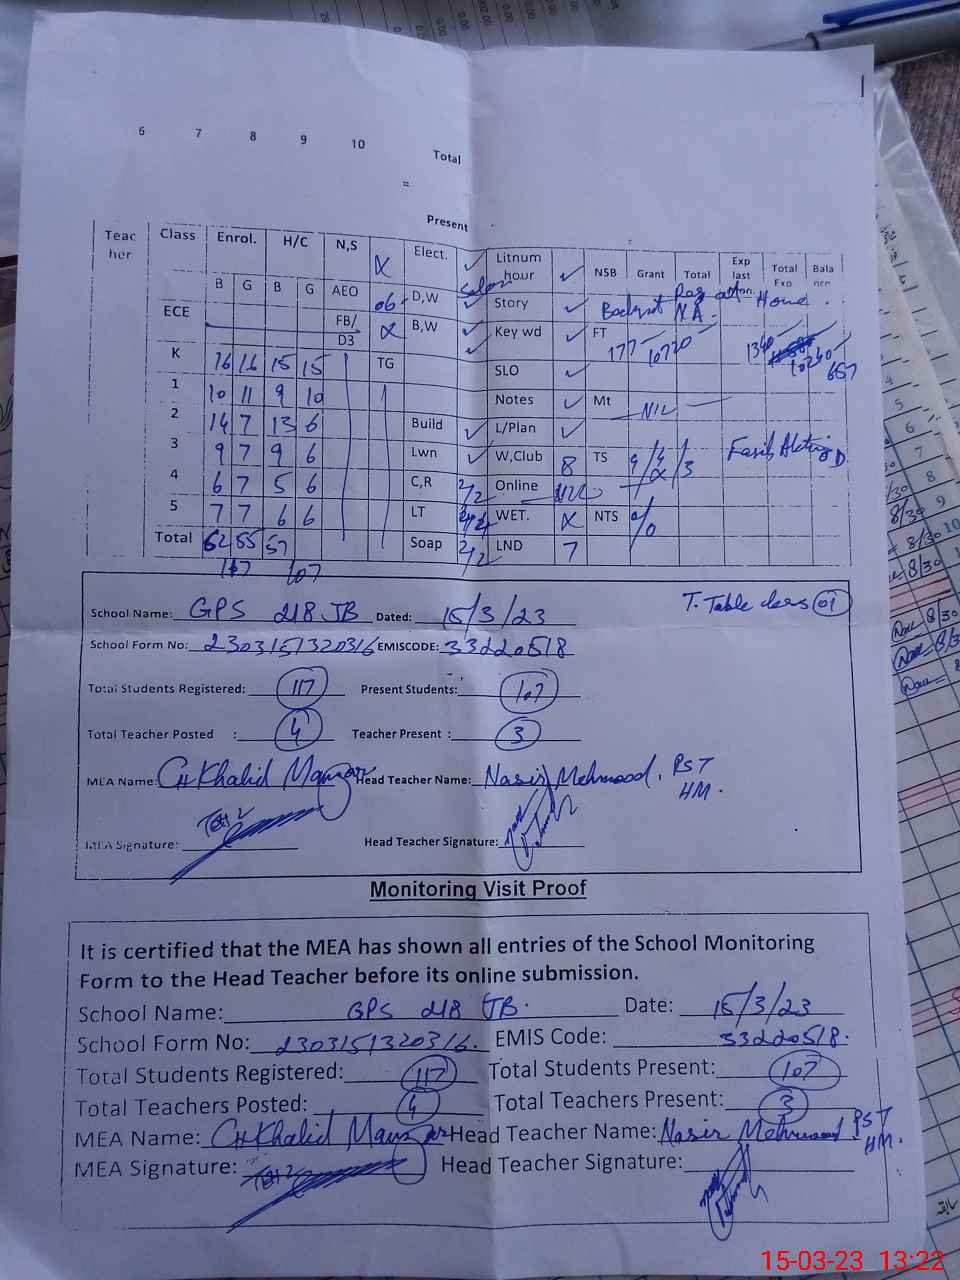 6 7 8 9 10
Total
=
Present
Teac her Class Enrol. H/C N,S Elect. Litnum hour NSB Grant Total Exp last mon. Total Exp Bala nce
B G B G AEO 06 D,W Story Reg at Home
ECE FB/ D3 B,W Key wd FT N.A. 177 10720 1340 10240 657
K 16 16 15 15 TG SLO
1 10 11 9 10 Notes Mt NIL
2 14 7 13 6 Build L/Plan
3 9 7 9 6 Lwn W,Club 8 TS
4 6 7 5 6 C,R 2/2 Online
5 7 7 6 6 LT WET. NTS
Total 62 55 57 Soap 2/2 LND 7
117 107
School Name: GPS 218 JB Dated: 15/3/23 T. Table class 01
School Form No: 2303151320316 EMISCODE: 33220518
Total Students Registered: 117 Present Students: 107
Total Teacher Posted : 4 Teacher Present : 3
MEA Name: CH Khalid Manzar Head Teacher Name: Nasir Mehmood, PST
HM.
MEA Signature: Head Teacher Signature:
Monitoring Visit Proof
It is certified that the MEA has shown all entries of the School Monitoring
Form to the Head Teacher before its online submission.
School Name: GPS 218 JB. Date: 15/3/23
School Form No: 2303151320316. EMIS Code: 33220518.
Total Students Registered: 117 Total Students Present: 107
Total Teachers Posted: 4 Total Teachers Present: 3
MEA Name: CH Khalid Manzar Head Teacher Name: Nasir Mehmood PST
HM.
MEA Signature: Head Teacher Signature:
15-03-23 13:22